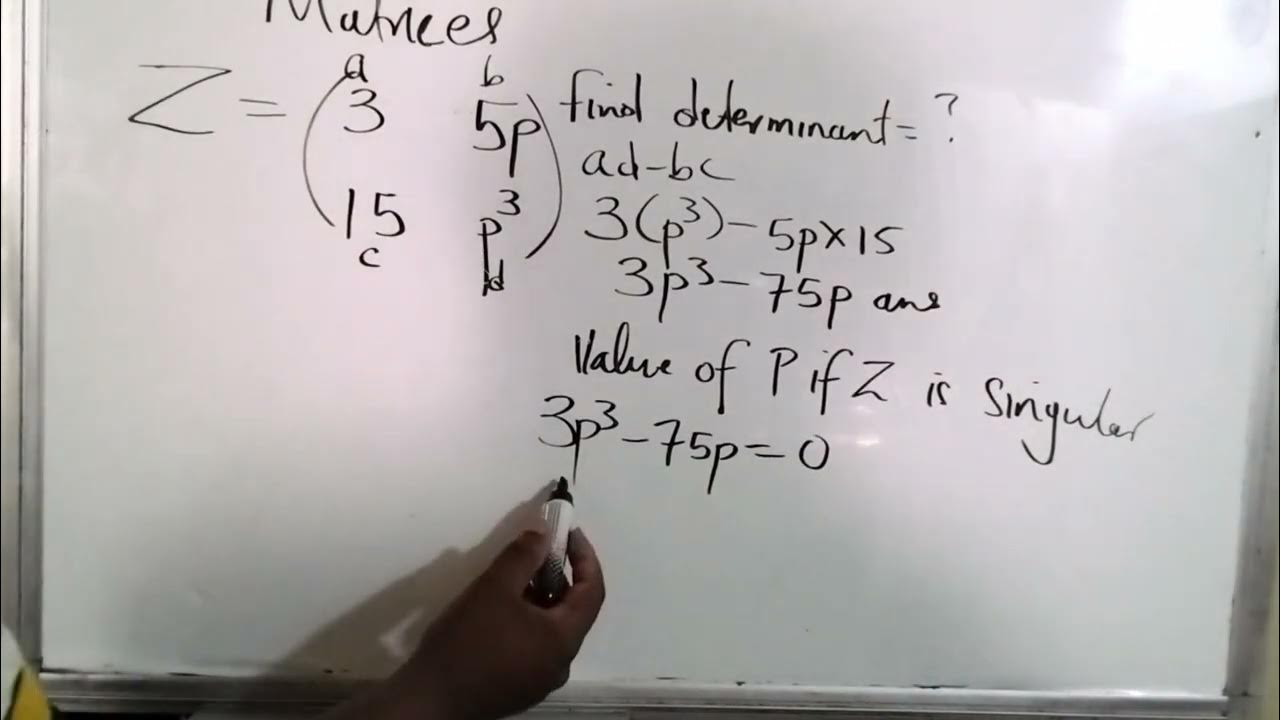 Matrices
a b
Z = (3 5p) find determinant = ?
ad-bc
15 p³ 3(p³) - 5p×15
c d
3p³ - 75p ans
Value of P if Z is Singular
3p³ - 75p = 0